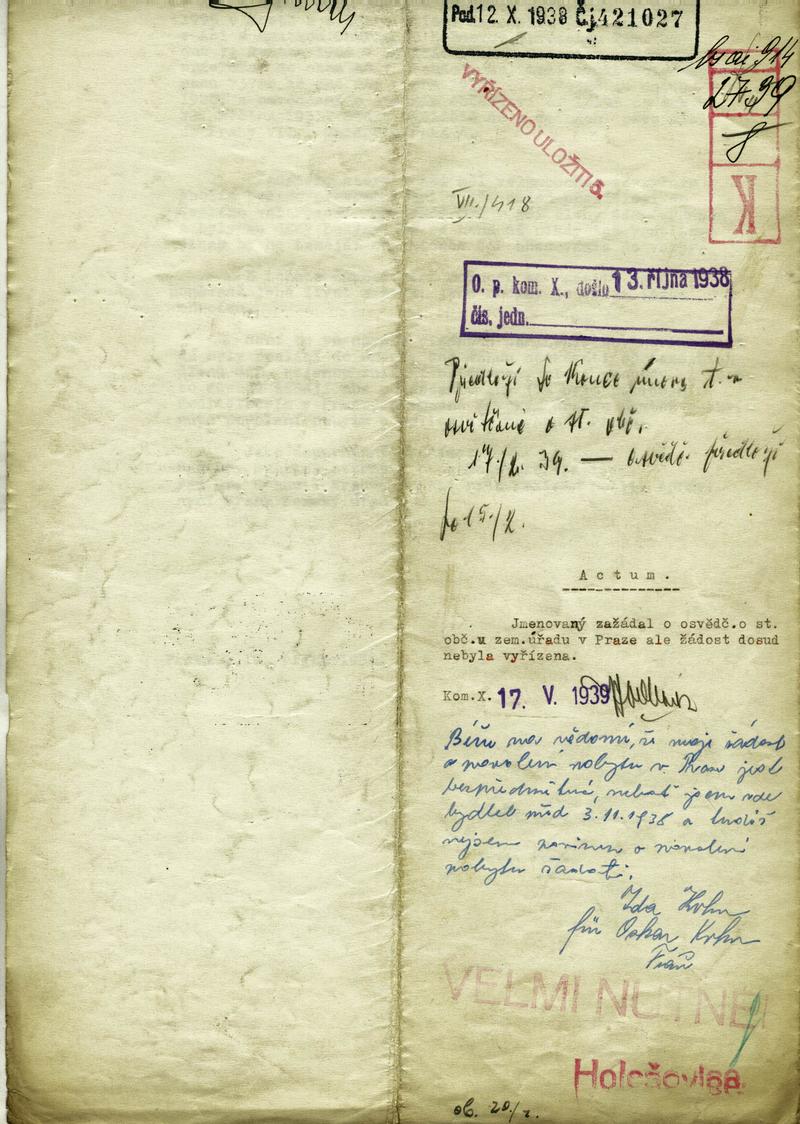 Pod. 12. X. 1938 Čj. 421027
27 39
8
VYŘÍZENO ULOŽITI 5.
K
VII./418
O. p. kom. X., došlo 13. října 1938
čís. jedn.
Předloží do konce února t. r.
osvědčení o st. obč.
17./2. 39. — osvědč. předloží
do 15./2.
Actum.
Jmenovaný zažádal o osvědč.o st.
obč.u zem.úřadu v Praze ale žádost dosud
nebyla vyřízena.
Kom.X. 17. V. 1939
Béřu na vědomí, že moje žádost
o povolení pobytu v Praze jest
bezpředmětná, neboť jsem zde
bydlel před 3.11.1938 a tudíž
nejsem povinen o povolení
pobytu žádati.
Ida Kohn
für Oskar Kohn
VELMI NUTNÉ!
Holešovice.
ob. 20/2.